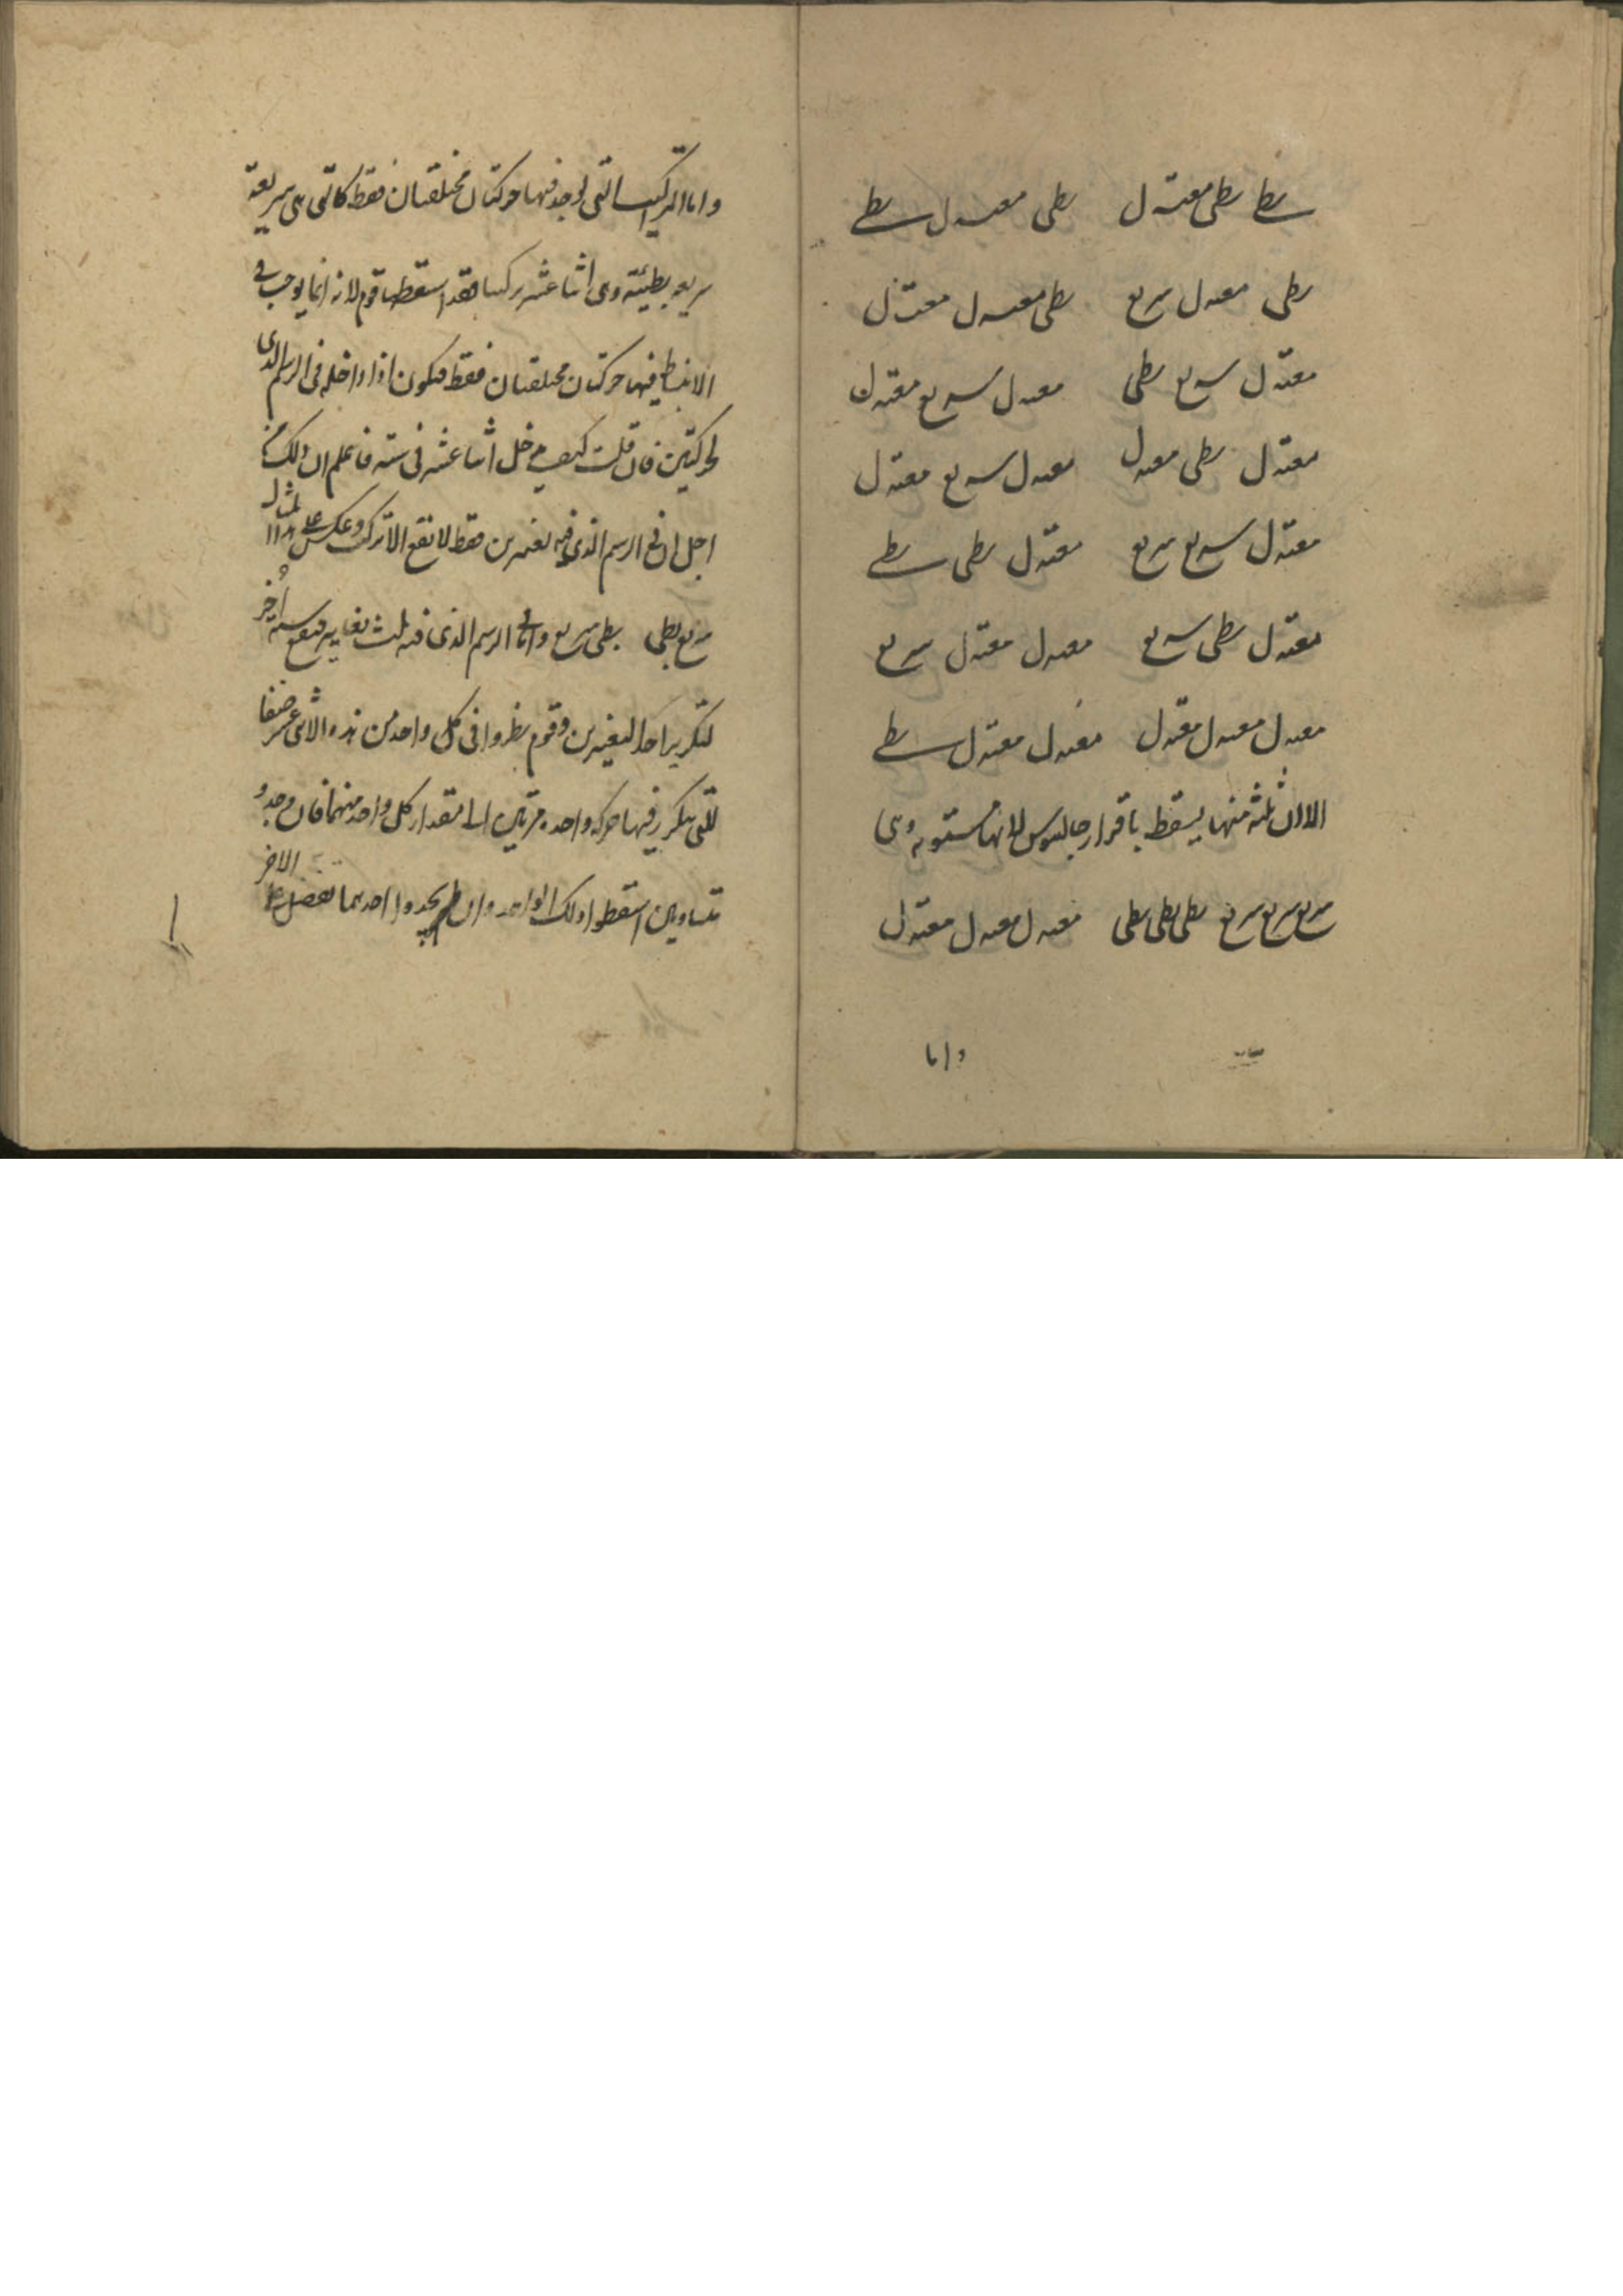 بطي بطي معتدل بطي معتدل بطي
بطي معتدل سريع بطي معتدل معتدل
معتدل سريع بطي معتدل سريع معتدل
معتدل بطي معتدل معتدل سريع معتدل
معتدل سريع سريع معتدل بطي بطي
معتدل بطي سريع معتدل معتدل سريع
معتدل معتدل معتدل معتدل معتدل بطي
الا ان ثلثه منها يسقط باقرار جالينوس لانها مستويه وهي
سريع سريع سريع بطي بطي بطي معتدل معتدل معتدل
واما
واما التركيبات التي يوجد فيها حركتان مختلفتان فقط كالتي هي سريعة
سريعه بطيئة وهي اثنا عشر تركيبا فقد اسقطها قوم لانه انما يوجب في
الانبساط فيها حركتان مختلفتان فقط فيكون اذا داخله في الرسم الذي
لحركتين فان قلت كيف يدخل اثنا عشر في سته فاعلم ان ذلك من
اجل ان في الرسم الذي فيه تغيرين فقط لا تقع الا تركيب وعكسه على المثال
سريع بطي بطي سريع واما في الرسم الذي فيه ثلث تغايير فيقع سته اُخر
لتكرير احد التغيرين وقوم نظروا في كل واحد من هذه الاثني عشر صنفا
للتي يتكرر فيها حركه واحده مرتين الى مقدار كل واحد منهما فان وجدو
متساويين اسقطوا ذلك الواحد وان لم يجدوا احدهما تفضل على الاخر